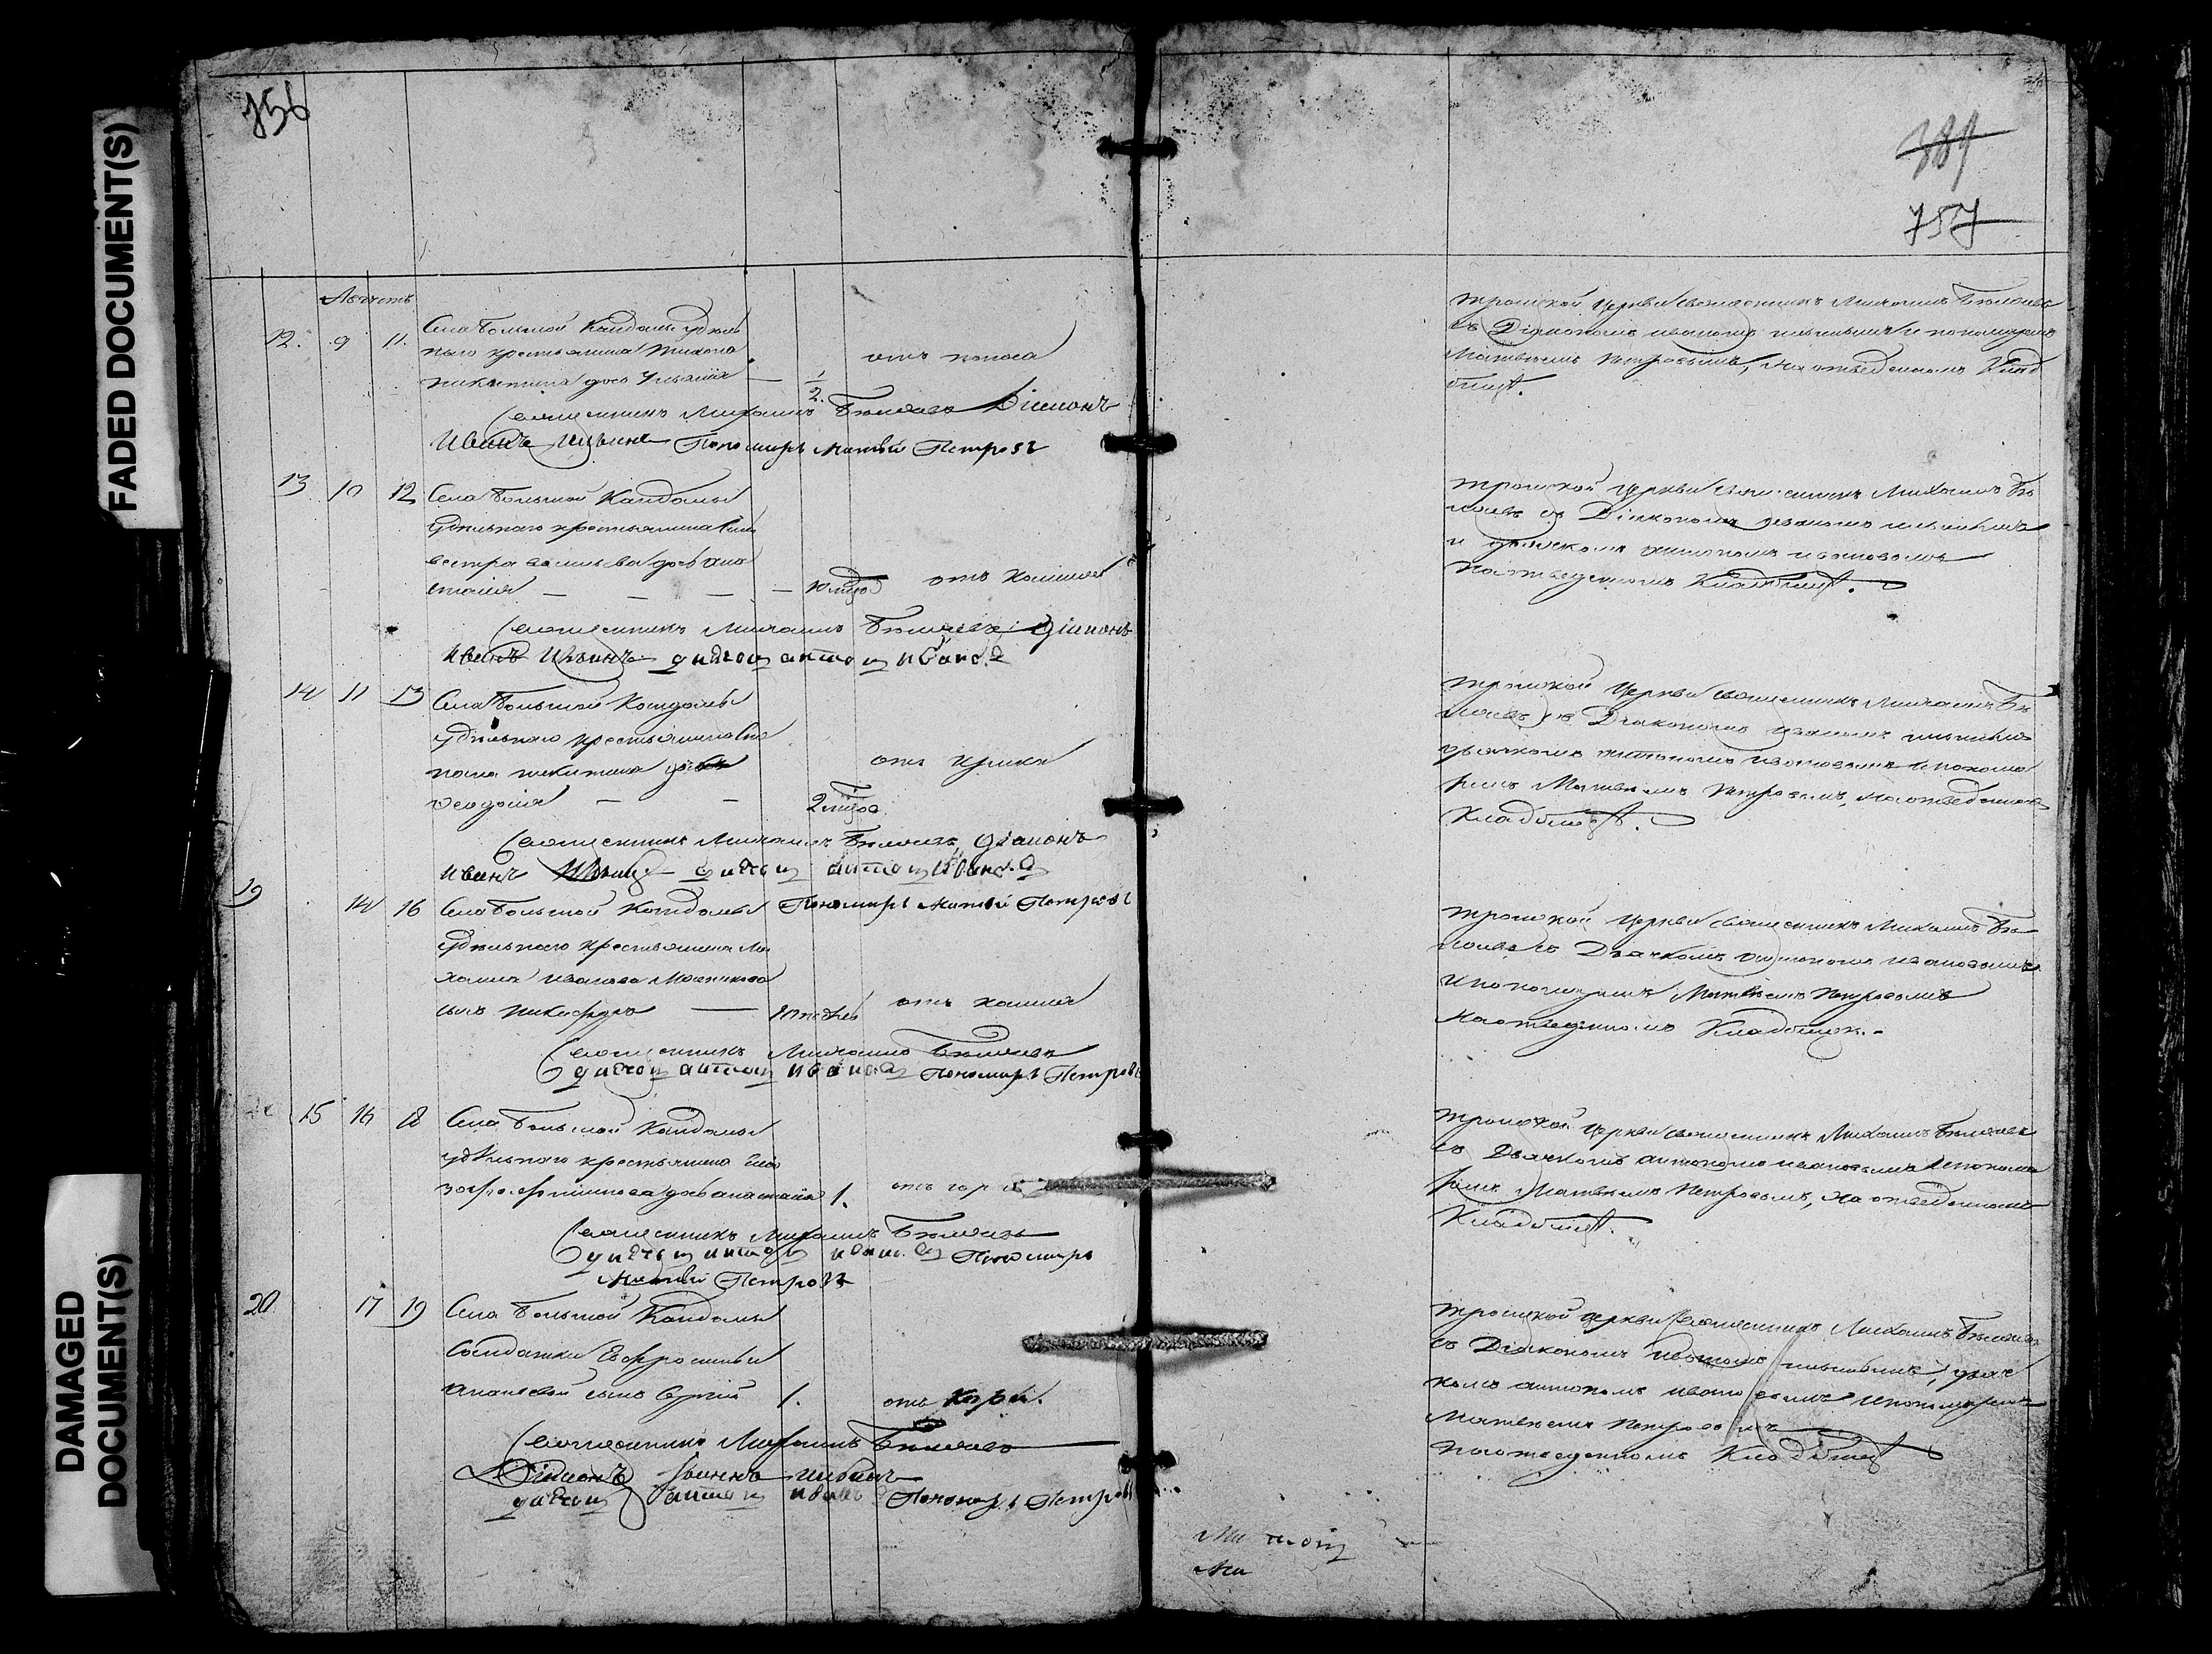 FADED DOCUMENT(S)
DAMAGED
DOCUMENT(S)
756
Августъ
12. 9 11. Села большой Кандалы удѣль
наго крестьянина тихона
никитина дочь Ульянія — 1/2. отъ поноса
Священникъ Михаилъ Бѣляевъ Діаконъ
Иванъ Ильинъ Пономарь Матвѣй Петровъ
13 10 12 Села большой Кандалы
удѣльнаго крестьянина Сил
вестра васильева дочь ана
стасія — — — — отъ кашля
Священникъ Михаилъ Бѣляевъ Діаконъ
Иванъ Ильинъ дьячокъ антонъ Ивановъ
14 11 13 Села большой Кандалы
удѣльнаго крестьянина
никитина дочь
Ѳеодосія — — отъ
Священникъ Михаилъ Бѣляевъ, Діаконъ
Иванъ Ильинъ дьячокъ антонъ Ивановъ
Пономарь Матвѣй Петровъ
19 14 16 Села большой Кандалы
удѣльнаго крестьянина Ми
хаила иванова
сынъ никифоръ — отъ кашля
Священникъ Михаилъ Бѣляевъ
дьячокъ антонъ Ивановъ Пономарь Петровъ
15 16 18 Села большой Кандалы
удѣльнаго крестьянина
дочь анастасія 1. отъ
Священникъ Михаилъ Бѣляевъ
дьячокъ антонъ Ивановъ Пономарь
Матвѣй Петровъ
20 17 19 Села большой Кандалы
Солдатки Евфросиньи
сынъ Сергій 1. отъ кори.
Священникъ Михаилъ Бѣляевъ
Діаконъ Іваннъ Ильинъ
дьячокъ антонъ Ивановъ Пономарь Петровъ
389
757
троицкой церкви священникъ Михаилъ Бѣляевъ
съ Діакономъ иваномъ ильинымъ и пономаремъ
Матвѣемъ петровымъ, на отведенномъ Клад
бищѣ.
троицкой церкви священникъ Михаилъ Бѣ
ляевъ съ Діакономъ иваномъ ильинымъ
и дьячкомъ антономъ ивановымъ
на отведенномъ Кладбищѣ.
троицкой церкви священникъ Михаилъ Бѣ
ляевъ съ Діакономъ иваномъ ильинымъ
дьячкомъ антономъ ивановымъ и понома
ремъ Матвѣемъ петровымъ, на отведенномъ
Кладбищѣ.
троицкой церкви священникъ Михаилъ Бѣ
ляевъ съ Дьячкомъ антономъ ивановымъ
и пономаремъ Матвѣемъ петровымъ
на отведенномъ Кладбищѣ.
троицкой церкви священникъ Михаилъ Бѣляевъ
съ Дьячкомъ антономъ ивановымъ и понома
ремъ Матвѣемъ петровымъ, на отведенномъ
Кладбищѣ.
троицкой церкви священникъ Михаилъ Бѣляевъ
съ Діакономъ иваномъ ильинымъ, дьяч
комъ антономъ ивановымъ и пономаремъ
Матвѣемъ петровымъ
на отведенномъ Кладбищѣ